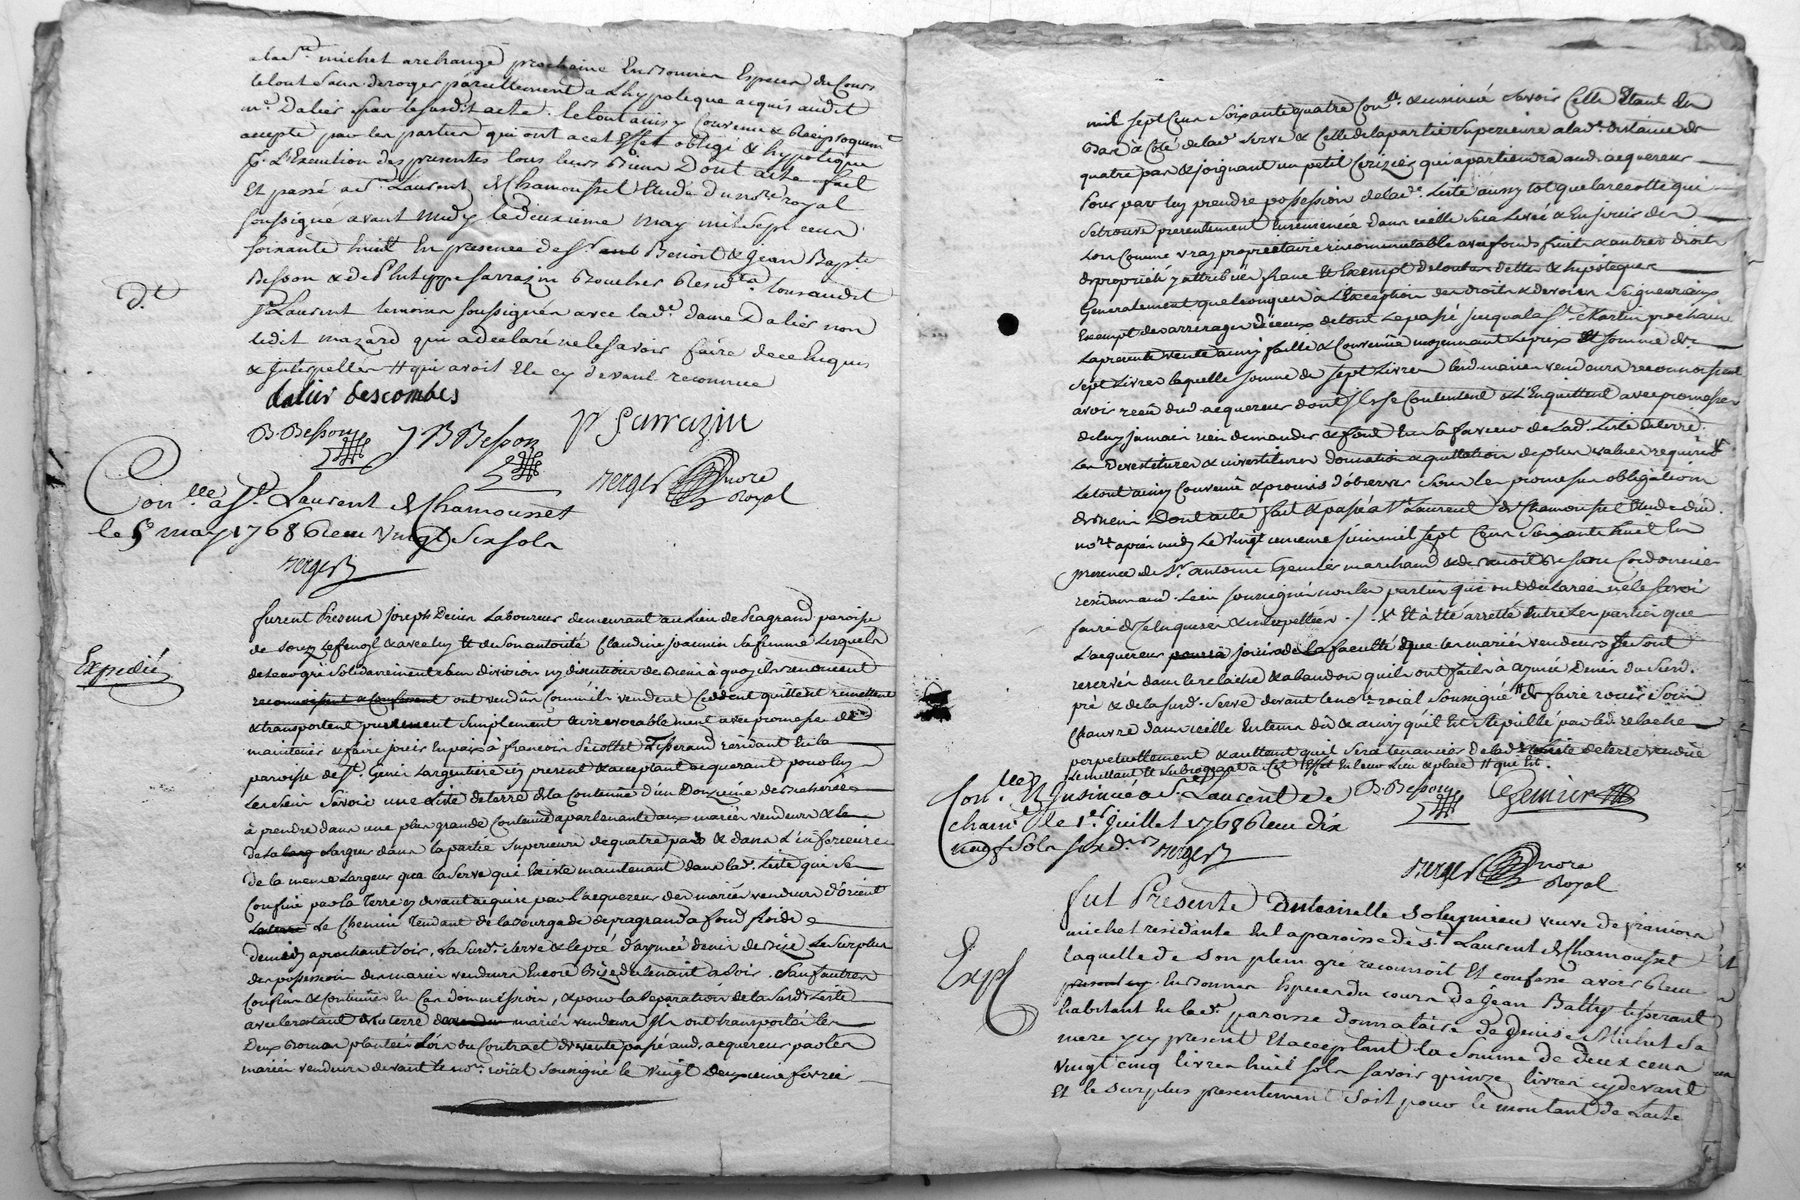 a la St. michel archange prochaine En bonnes Especes du Cours
le tout sans deroger pareillement a Lhypoteque acquis audit
mr. Dalier par le susdit acte. le tout ainsy Convenu & Reciproquemt.
accepté par les parties qui ont a cet Effet obligé & hypotequé
pr. L'Execution des presentes tous leurs biens Dont acte fait
Et passé a St. Laurent de Chamousset Etude du nore. royal
soussigné avant midy le deuxieme may mil sept cens
soixante huit En presence de Sr. Benoit & Jean Bapte.
Besson & de Philippe sarrazin Boucher tous audit
dt
St. Laurent temoins soussignés avec lade. dame Dalier non
ledit mazard qui a declaré ne le savoir faire de ce Enquis
& Interpellé # qui avoit Ete cy devant reconnue
dalier descombes
B. Besson J B Besson pr Sarrazin
Berger nore Royal
Conllé a St. Laurent de Chamousset
le 9 may 1768 Receu Vingt Six sols
Berger
furent Presens Joseph Denis Laboureur demeurant au Lieu de Peagrand paroisse
de Souzy & avec luy Et de son autorité Claudine joannin sa femme Lesquels
Expedié
de leur gré Solidairement sans division ny discution de biens à quoy ils renoncent
ont vendûs Comme ils vendent Cedent quittent remettent
& transportent purement simplement & irrevocablement avec promesse de
maintenir & faire jouir En paix à francois tisserand residant En la
paroisse de St. Genis Largentiere icy present & acceptant acquerant pour luy
Les siens Savoir une Liste de terre de la Contenue d'un Douzieme de Bicherée
à prendre dans une plus grande Contenue apartenante aux mariés vendeurs & Le
Largeur dans la partie superieure de quatre pas & dans L'inferieure
de la meme Largeur que la Serve qui Existe maintenant dans lade. Liste qui se
Confine par la Terre cy devant acquise par l'acquereur des mariés vendeurs d'orient
Le Chemin Tendant de la bourgade de peagrand a fond froide
de midy aprochant Soir, La Susde. Serve & le pré d'aymée denis de Bize Le surplus
des possession des mariés vendeurs Encore Bize de tenant a Soir. Sauf autres
Confins & Contenue En Cas d'ommission, & pour la Separation de la Susde. Liste
avec le restant de la terre mariés vendeurs Ils ont transporté les
Deux Bornes plantées Lors du Contract de vente passé aud. acquereur par les
mariés vendeurs devant le nore. roial soussigné le vingt Deuxieme fevrier
mil sept Cens Soixante quatre Conllé. & insinué savoir Celle Etant En
Bas à Coté de lade. Serve & Celle de la partie superieure a lade. distance de
quatre pas & joignant un petit Cerisier qui apartiendra aud. acquereur
Pour par luy prendre possession de lade. Liste aussy tot que la recolte qui
se trouve presentement Ensemencée dans icelle sera Levée & En jouir des
Lors Comme vray proprietaire incommutable avec fonds fruits & autres droits
de proprieté y attribués franc Et Exempt de toutes dettes & hipoteques
Generalement quelconques à L'Exception des droits & devoirs Seigneuriaux
Exempt des arrerages d'iceux de tout Le passé jusqu'a la St. Martin prochaine
La presente vente ainsy faitte & Convenüe moyennant Le prix Et somme de
sept Livres laquelle somme de sept Livres lesd. mariés vendeurs reconnoissent
avoir receu dud. acquereur dont ils se Contentent & L'Enquittent avec promesse
de luy jamais rien demander & font En sa faveur de Lad. Liste de terre
Les Devestitures & investitures donnation & quittation de plus value requises
Le tout ainsy Convenu & promis d'observer sous les promesses obligations
de biens Dont acte fait & passé à St. Laurent de Chamousset Etude dud.
nore. aprés midy Le vingt unieme juin mil sept Cens Soixante huit En
presence de Sr. antoine Genier marchand & de Benoit Besson Cordonnier
residans aud. Lieu soussignés non les parties qui ont declarés ne le savoir
faire de ce Enquises & interpellées. /. X Et à Eté arretté Entre les parties que
L'acquereur jouira de la faculté que les mariés vendeurs se sont
reservés dans le relache & abandon qu'ils ont faits à aymée Denis du susd.
pré & de la susd. Serve devant le nore. roial soussigné de faire rouir Son
Chanvre dans icelle En tems dû & ainsy qu'il Est stipullé par led. relache
perpetuellement & autant quil Sera tenancier de lad. Liste de terre vendüe
Le mettant & Subrogeant à Cet Effet En leur Lieu & place # qui Est.
Conllé & Insinué a St. Laurent de
Chamt. le 1er. Juillet 1768 Receu dix
neuf Sols six drs. Berger
B. Besson Genier
Berger nore Royal
fut Presente Antoinette Soleymieu veuve de francois
michel residante En la paroisse de St. Laurent de Chamousset
Expé
laquelle de son plein gré reconnoit Et confesse avoir Receu
En bonnes Especes du cours de Jean Batty tisserant
habitant En lade. paroisse donnataire de Denise Michel sa
mere icy present Et acceptant la Somme de deux cens
vingt cinq livres huit sols savoir quinze livres cy devant
Et le surplus presentement soit pour le montant de Lacte